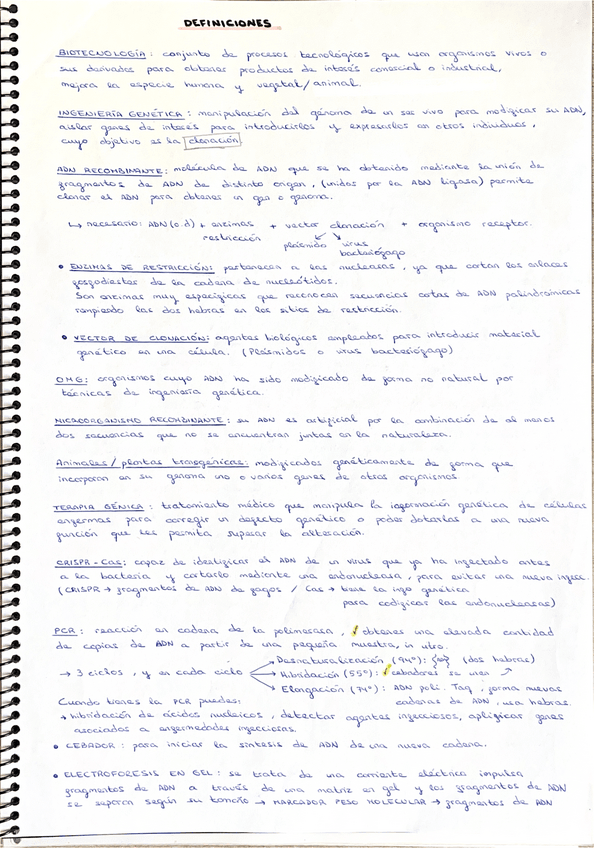 DEFINICIONES
BIOTECNOLOGÍA: conjunto de procesos tecnológicos que usan organismos vivos o
sus derivados para obtener productos de interés comercial o industrial,
mejora la especie humana y vegetal/animal.
INGENIERÍA GENÉTICA: manipulación del genoma de un ser vivo para modificar su ADN,
aislar genes de interés para introducirlos y expresarlos en otros individuos,
cuyo objetivo es la clonación
ADN RECOMBINANTE: molécula de ADN que se ha obtenido mediante la unión de
fragmentos de ADN de distinto origen, (unidos por la ADN ligasa) permite
clonar el ADN para obtener un gen o genoma.
↳ necesario: ADN (o.d) + enzimas + vector clonación + organismo receptor.
restricción plásmido virus
bacteriófago
• ENZIMAS DE RESTRICCIÓN: pertenecen a las nucleasas, ya que cortan los enlaces
fosfodiester de la cadena de nucleótidos.
Son enzimas muy específicas que reconocen secuencias cortas de ADN palindrómicas
rompiendo las dos hebras en los sitios de restricción.
• VECTOR DE CLONACIÓN: agentes biológicos empleados para introducir material
genético en una célula. (Plásmidos o virus bacteriófago)
OMG: organismos cuyo ADN ha sido modificado de forma no natural por
técnicas de ingeniería genética.
MICROORGANISMO RECOMBINANTE: su ADN es artificial por la combinación de al menos
dos secuencias que no se encuentran juntas en la naturaleza.
Animales/plantas transgénicas: modificados genéticamente de forma que
incorporan en su genoma uno o varios genes de otros organismos.
TERAPIA GÉNICA: tratamiento médico que manipula la información genética de células
enfermas para corregir un defecto genético o poder dotarlas a una nueva
función que les permita superar la alteración.
CRISPR-Cas: capaz de identificar el ADN de un virus que ya ha infectado antes
a la bacteria y cortarlo mediante una endonucleasa, para evitar una nueva infecc.
(CRISPR → fragmentos de ADN de fagos / Cas → tiene la info genética
para codificar las endonucleasas)
PCR: reacción en cadena de la polimerasa, obtienes una elevada cantidad
de copias de ADN a partir de una pequeña muestra, in vitro.
→ 3 ciclos, y en cada ciclo
Desnaturalización (94º): (dos hebras)
Hibridación (55º): cebadores se unen
Elongación (74º): ADN poli. Taq, forma nuevas
cadenas de ADN, usa hebras.
Cuando tienes la PCR puedes:
→ hibridación de ácidos nucleicos, detectar agentes infecciosos, aplificar genes
asociados a enfermedades infecciosas.
• CEBADOR: para iniciar la síntesis de ADN de una nueva cadena.
• ELECTROFORESIS EN GEL: se trata de una corriente eléctrica impulsa
fragmentos de ADN a través de una matriz en gel y los fragmentos de ADN
se separan según su tamaño → MARCADOR PESO MOLECULAR → fragmentos de ADN